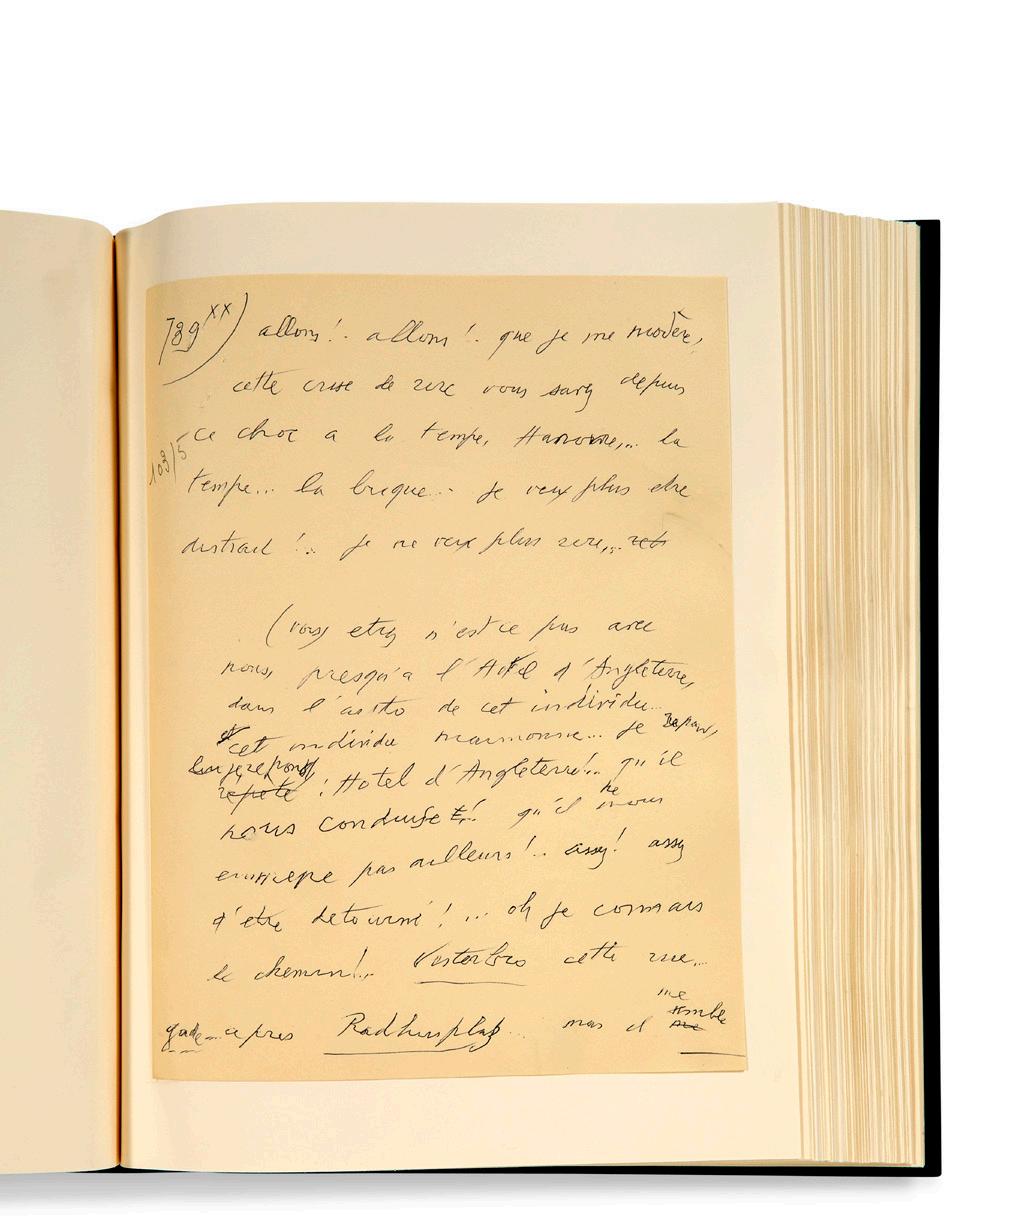 789 xx) allons!. allons!. que je me modère,
cette crise de rire vous savez depuis
ce choc a la tempe, Hanovre,.. la
103/5
tempe... la brique... je veux plus etre
distrait!.. je ne veux plus rire,..
(vous etiez n'est ce pas avec
nous, presqu'a l'Hotel d'Angleterre,
dans l'auto de cet individu..
cet individu marmonne... je
: Hotel d'Angleterre!.. qu'il
nous conduise!.. qu'il ne nous
emmene pas ailleurs!.. assez! assez
d'etre detourné!... oh je connais
le chemin!.. Vesterbro cette rue..
gade... apres Radhusplatz.. mais il me semble